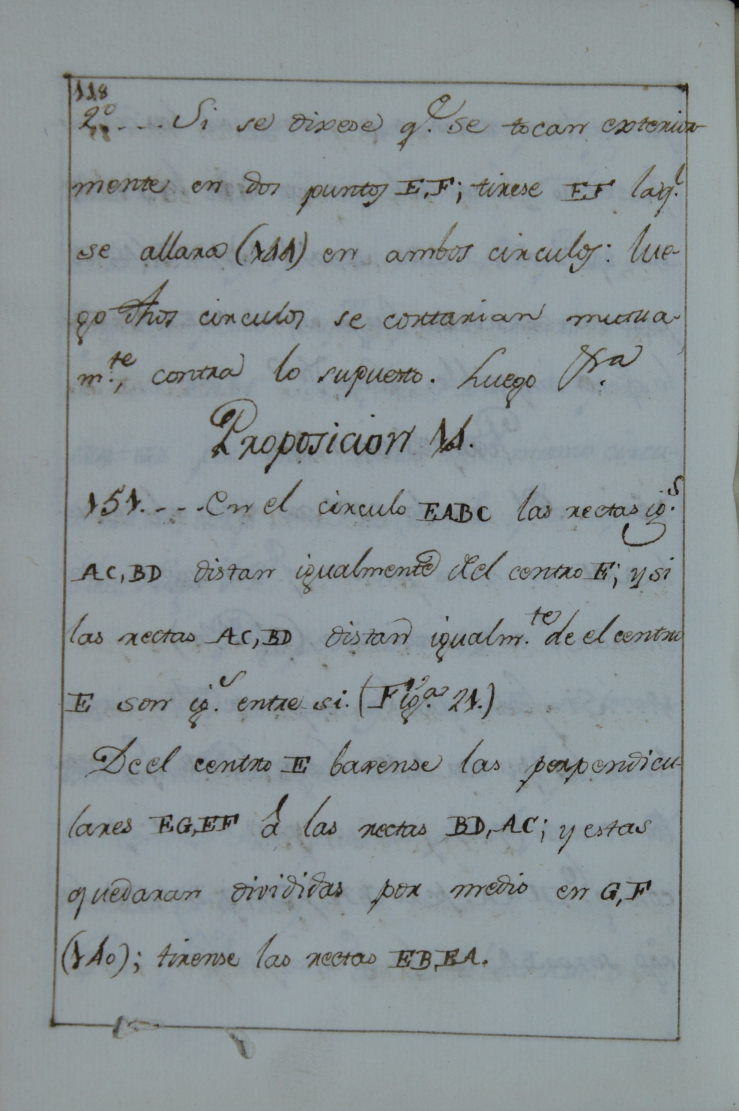 118
2º.... Si se dixese q.e se tocan exterior-
mente en dos puntos E,F; tirese EF la q.l
se allara (144) en ambos circulos: lue-
go dhos circulos se cortarian mutua-
m.te, contra lo supuesto. Luego &.a
Proposicion 14.
151.... En el circulo EABC las rectas ig.s
AC, BD distan igualmente del centro E; y si
las rectas AC, BD distan igualm.te de el centro
E son ig.s entre si. (Fig.a 21.)
De el centro E baxense las perpendicu-
lares EG, EF á las rectas BD, AC; y estas
quedaran divididas por medio en G, F
(140); tirense las rectas EB, EA.